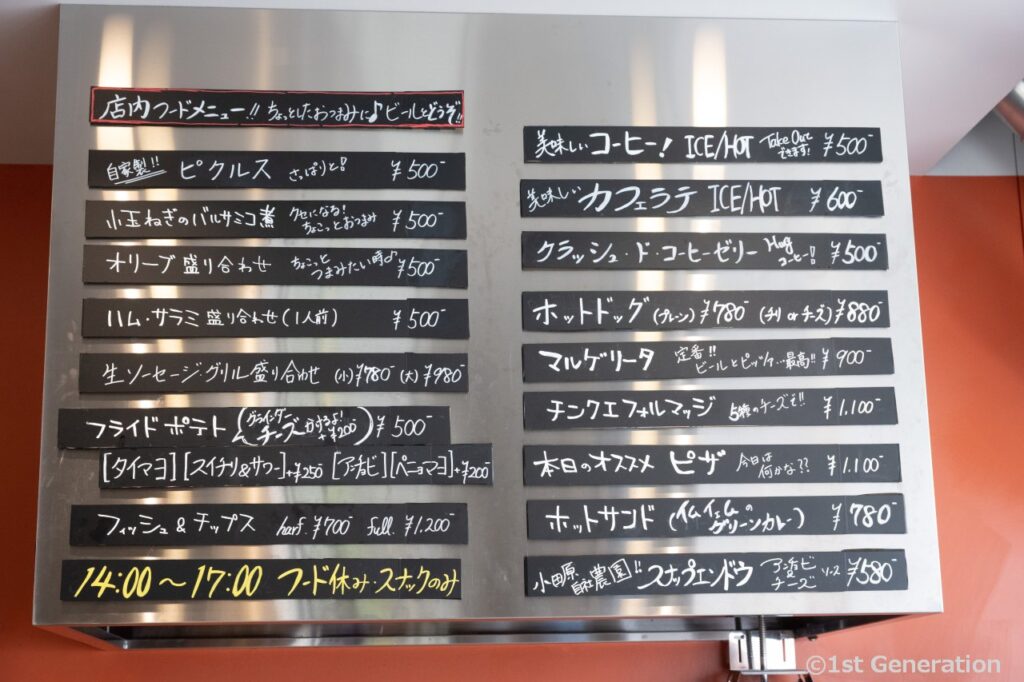 店内フードメニュー!! ちょっとしたおつまみに♪ビールとどうぞ!!
自家製!! ピクルス さっぱりと! ¥500-
小玉ねぎのバルサミコ煮 クセになる! ちょこっとおつまみ ¥500-
オリーブ盛り合わせ ちょこっと つまみたい時♪ ¥500-
ハム・サラミ盛り合わせ(1人前) ¥500-
生ソーセージグリル盛り合わせ (小)¥780- (大)¥980-
フライドポテト (グラインダー チーズかけるよ! +¥200) ¥500-
[タイマヨ][スイチリ&サワー]+¥250 [アンチョビ][ペニョマヨ]+¥200-
フィッシュ&チップス harf.¥700- full.¥1,200-
14:00〜17:00 フード休み・スナックのみ
美味しい コーヒー! ICE/HOT Take Out できます! ¥500-
美味しい カフェラテ ICE/HOT ¥600-
クラッシュ・ド・コーヒーゼリー コーヒー! ¥500-
ホットドッグ (プレーン)¥780- (チリ or チーズ)¥880-
マルゲリータ 定番!! ビールとピッツァ…最高!! ¥900-
チンクエフォルマッジ 5種のチーズで!! ¥1.100-
本日のオススメ ピザ 今日は何かな?? ¥1.100-
ホットサンド (イムイェムの グリーンカレー) ¥780-
小田原 自社農園!! スナップエンドウ アンチョビ チーズ ソース ¥580-
©1st Generation